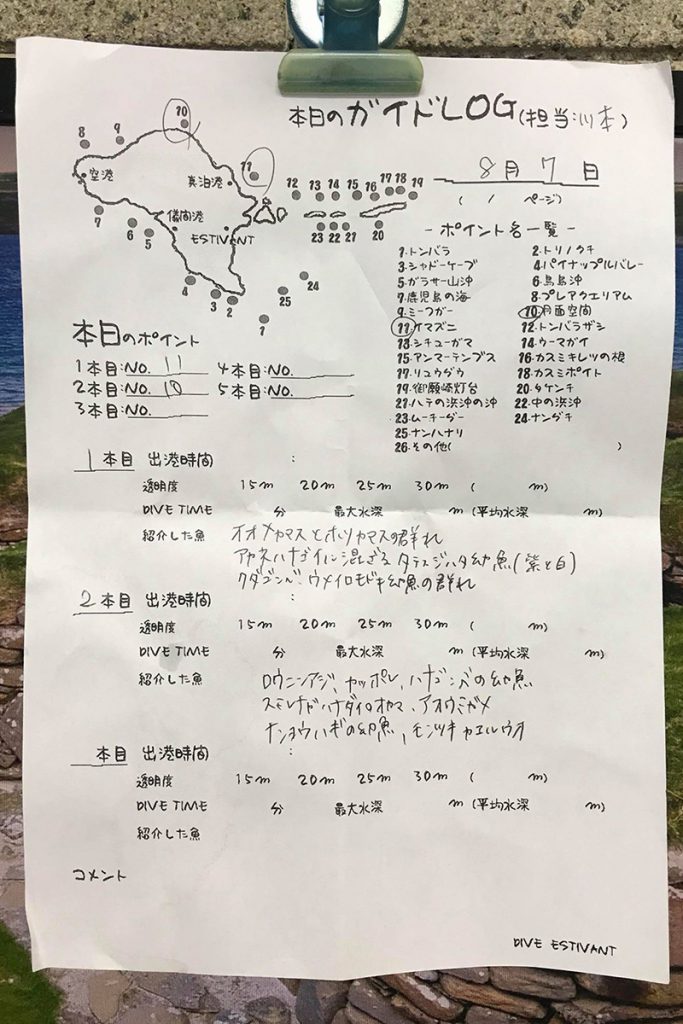 本日のガイドLOG(担当:川本)
8月7日
( 1 ページ)
8 9 10 11
空港
真泊港
儀間港
ESTIVANT
7 6 5 4 3 2 1 25 24
12 13 14 15 16 17 18 19
23 22 21 20
- ポイント名一覧 -
1.トンバラ 2.トリノクチ
3.シャドーケーブ 4.パイナップルバレー
5.ガラサー山沖 6.鳥島沖
7.鹿児島の海 8.プレアクエリアム
9.ミーフガー 10.月面空間
11.イマズニ 12.トンバラザシ
13.シチューガマ 14.ウーマガイ
15.アンマーテンプス 16.カスミキレツの根
17.リュウダウ 18.カスミポイト
19.御願崎灯台 20.タケンチ
21.ハテの浜沖の沖 22.中の浜沖
23.ムーチーダー 24.ナンダチ
25.ナンハナリ
26.その他( )
本日のポイント
1本目:NO. 11 4本目:NO.
2本目:NO. 10 5本目:NO.
3本目:NO.
1本目 出港時間 :
透明度 15m 20m 25m 30m ( m)
DIVE TIME 分 最大水深 m (平均水深 m)
紹介した魚 イオメカマスとホソカマスの群れ
アカネハナゴイに混ざる タテスジハタ幼魚(紫と白)
クダゴンベ、ウメイロモドキ幼魚の群れ
2本目 出港時間 :
透明度 15m 20m 25m 30m ( m)
DIVE TIME 分 最大水深 m (平均水深 m)
紹介した魚 ロウニンアジ、カッポレ、ハナゴンベの幼魚
スミレナガハナダイ、アオウミガメ
ナンヨウハギの幼魚、モンツキカエルウオ
本目 出港時間 :
透明度 15m 20m 25m 30m ( m)
DIVE TIME 分 最大水深 m (平均水深 m)
紹介した魚
コメント
DIVE ESTIVANT